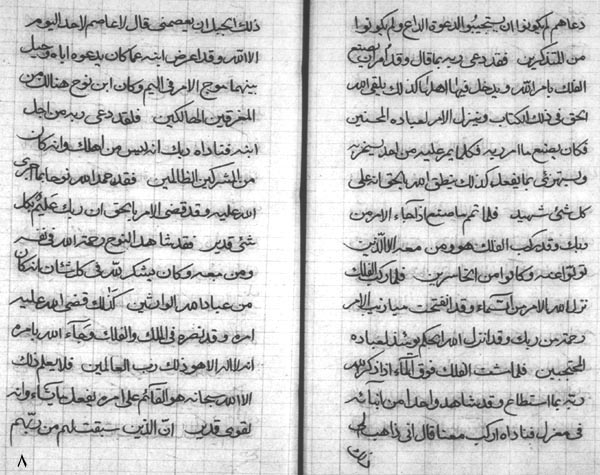 دعاهم لم يكونوا ان يستجيبوا لدعوة الداع ولم يكونوا
من المتذكرين فقد دعى ربه بما قال وقد امر ان يصنع
الفلك بامر الله ويدخل فيها اهلها كذلك يلقى الله
الحق في ذلك الكتاب وينزل الامر لعباده المحسنين
فكان يصنع ما امر ربه فكلما يمر عليه من احد يسخر به
ويستهزئ بما يفعل كذلك ينطق الله بالحق انه على
كل شئ شهيد فلما تم ما صنع اذا جاء الامر من
ربك وقد ركب الفلك هو ومن معه الا الذين
تولوا عنه وكانوا من الخاسرين فلما ركب الفلك
نزل الله الامر من السماء وقد انفتحت ميازيب الامر
رحمة من ربك وقد انزل الله الحكم يومئذ لعباده
المحتجبين فلما مشت الفلك فوق الماء اذا ذكر الله
ربه بما استطاع وقد شاهد واحدا من ابنائه
في معزل فناداه اركب معنا قال اني ذاهب الى
ذلك الجبل ان يعصمني قال لا عاصم لاحد اليوم
الا الله وقد اعرض ابنه عما كان يدعوه اباه وحيل
بينهما موج الامر في اليم وكان ابن نوح هنالك من
المغرقين الهالكين فلقد دعى ربه من اجل
ابنه فناداه ربك انه ليس من اهلك وانه كان
من المشركين الظالمين فقد حمد الله نوحا بما جرى
الله عليه وقد قضى الامر بالحق ان ربك عليم بكل
شئ قدير فقد شاهد النوح رحمة الله في نفسه
ومن معه وكان يشكر لله في كل شان انه كان
من عباد الله الوارثين كذلك قضى الله عليه
امره وقد نصره في الملك والفلك وجاء الله بامره
انه لا اله الا هو ذلك رب العالمين فلا يعلم ذلك
الا الله سبحانه هو القائم على امره يفعل ما يشاء وانه
لقوي قدير ان الذين سبقت لهم من ربهم
٨